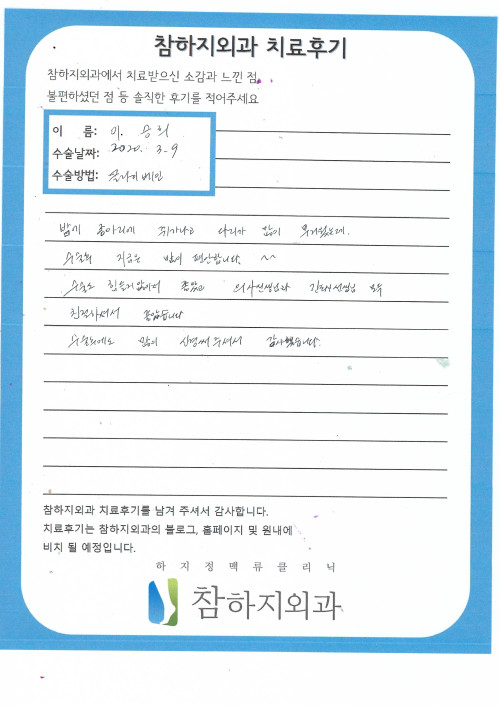 참하지외과 치료후기
참하지외과에서 치료받으신 소감과 느낀 점,
불편하셨던 점 등 솔직한 후기를 적어주세요
이 름: 이. 승희
수술날짜: 2020. 3-9
수술방법: 클라리베인
밤에 종아리에 쥐가나고 다리가 많이 무거웠는데.
수술후 지금은 밤이 편안합니다. ^^
수술도 힘들지않아서 좋았고 의사선생님과 간호사선생님 모두
친절하셔서 좋았습니다
수술후에도 많이 신경써주셔서 감사했습니다.
참하지외과 치료후기를 남겨 주셔서 감사합니다.
치료후기는 참하지외과의 블로그, 홈페이지 및 원내에
비치 될 예정입니다.
하지정맥류클리닉
참하지외과